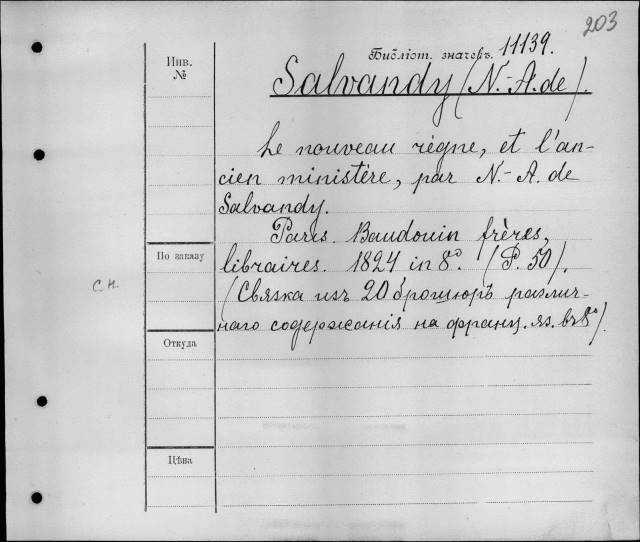 203
Библіот. значекъ 11139.
Инв.
№
Salvandy (N.-A. de).
Le nouveau règne, et l'an-
cien ministère, par N.-A. de
Salvandy.
Paris. Baudouin frères,
По заказу
libraires. 1824 in 8°. (P. 50).
с.н.
(Связка изъ 20 брошюръ различ-
наго содержанія на франц. яз. въ 8°)
Откуда
Цѣна